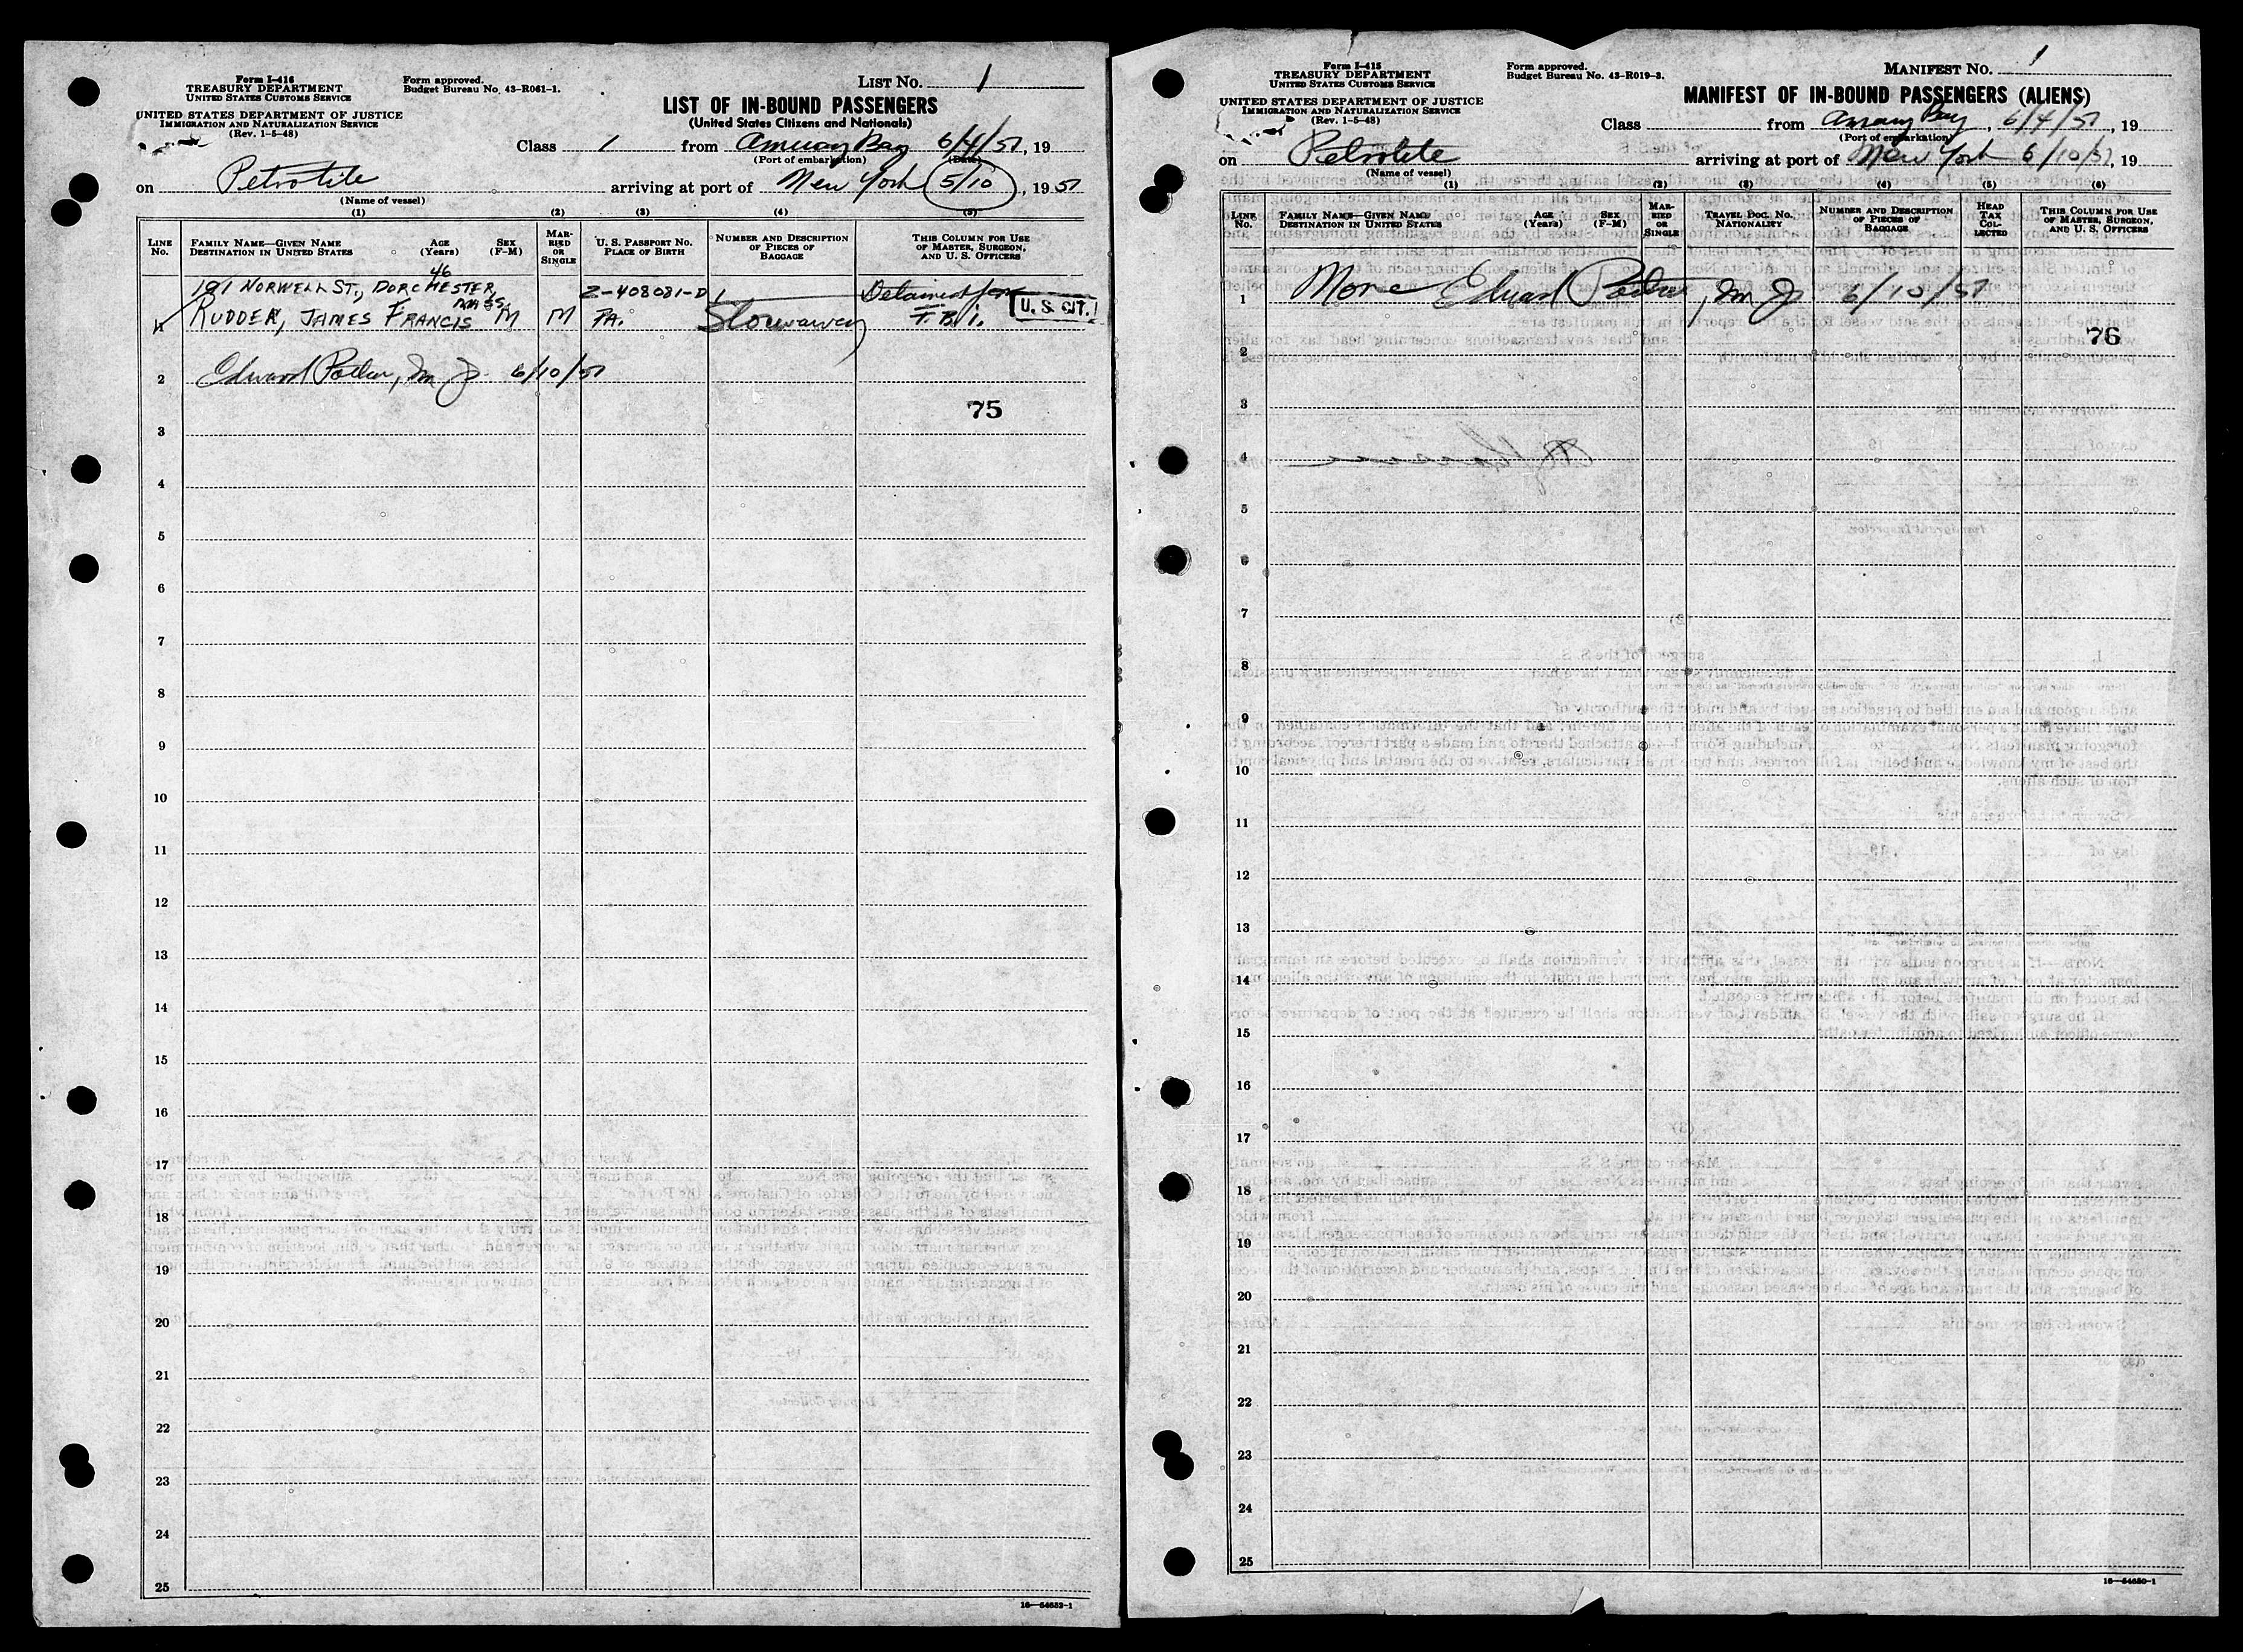 Form I-416
TREASURY DEPARTMENT
UNITED STATES CUSTOMS SERVICE
UNITED STATES DEPARTMENT OF JUSTICE
IMMIGRATION AND NATURALIZATION SERVICE
(Rev. 1-5-48)
Form approved.
Budget Bureau No. 43-R061-1.
LIST No. 1
LIST OF IN-BOUND PASSENGERS
(United States Citizens and Nationals)
Class 1 from Amuay Bay 6/4/51, 19
(Port of embarkation) (Date)
on Petrolite arriving at port of New York 5/10, 1951
(Name of vessel)
(1) (2) (3) (4) (5)
LINE No.
FAMILY NAME—GIVEN NAME
DESTINATION IN UNITED STATES
AGE (Years)
SEX (F-M)
MARRIED OR SINGLE
U. S. PASSPORT NO.
PLACE OF BIRTH
NUMBER AND DESCRIPTION OF PIECES OF BAGGAGE
THIS COLUMN FOR USE OF MASTER, SURGEON, AND U. S. OFFICERS
46
191 NORWELL ST., DORCHESTER, MASS. Z-408081-D 1 Detained for
RUDDER, JAMES FRANCIS M M PA. Stowaway F.B.I. U. S. CIT.
2 Edward Potter, Im Js. 6/10/51
75
3
4
5
6
7
8
9
10
11
12
13
14
15
16
17
18
19
20
21
22
23
24
25
16—54652-1
Form I-415
TREASURY DEPARTMENT
UNITED STATES CUSTOMS SERVICE
UNITED STATES DEPARTMENT OF JUSTICE
IMMIGRATION AND NATURALIZATION SERVICE
(Rev. 1-5-48)
Form approved.
Budget Bureau No. 43-R019-3.
MANIFEST No. 1
MANIFEST OF IN-BOUND PASSENGERS (ALIENS)
Class from Amuay Bay, 6/4/51, 19
(Port of embarkation)
on Petrolite arriving at port of New York 6/10/51, 19
(Name of vessel)
(1) (2) (3) (4) (5) (6)
LINE No.
FAMILY NAME—GIVEN NAME
DESTINATION IN UNITED STATES
AGE (Years)
SEX (F-M)
MARRIED OR SINGLE
TRAVEL DOC. NO.
NATIONALITY
NUMBER AND DESCRIPTION OF PIECES OF BAGGAGE
HEAD TAX COLLECTED
THIS COLUMN FOR USE OF MASTER, SURGEON, AND U. S. OFFICERS
1 None Edward Potter, Im Js 6/10/51
76
2
3
4
5
6
7
8
9
10
11
12
13
14
15
16
17
18
19
20
21
22
23
24
25
16—54650-1